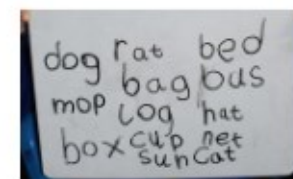 dog rat bed
bag bus
mop log hat
box cup net
sun cat